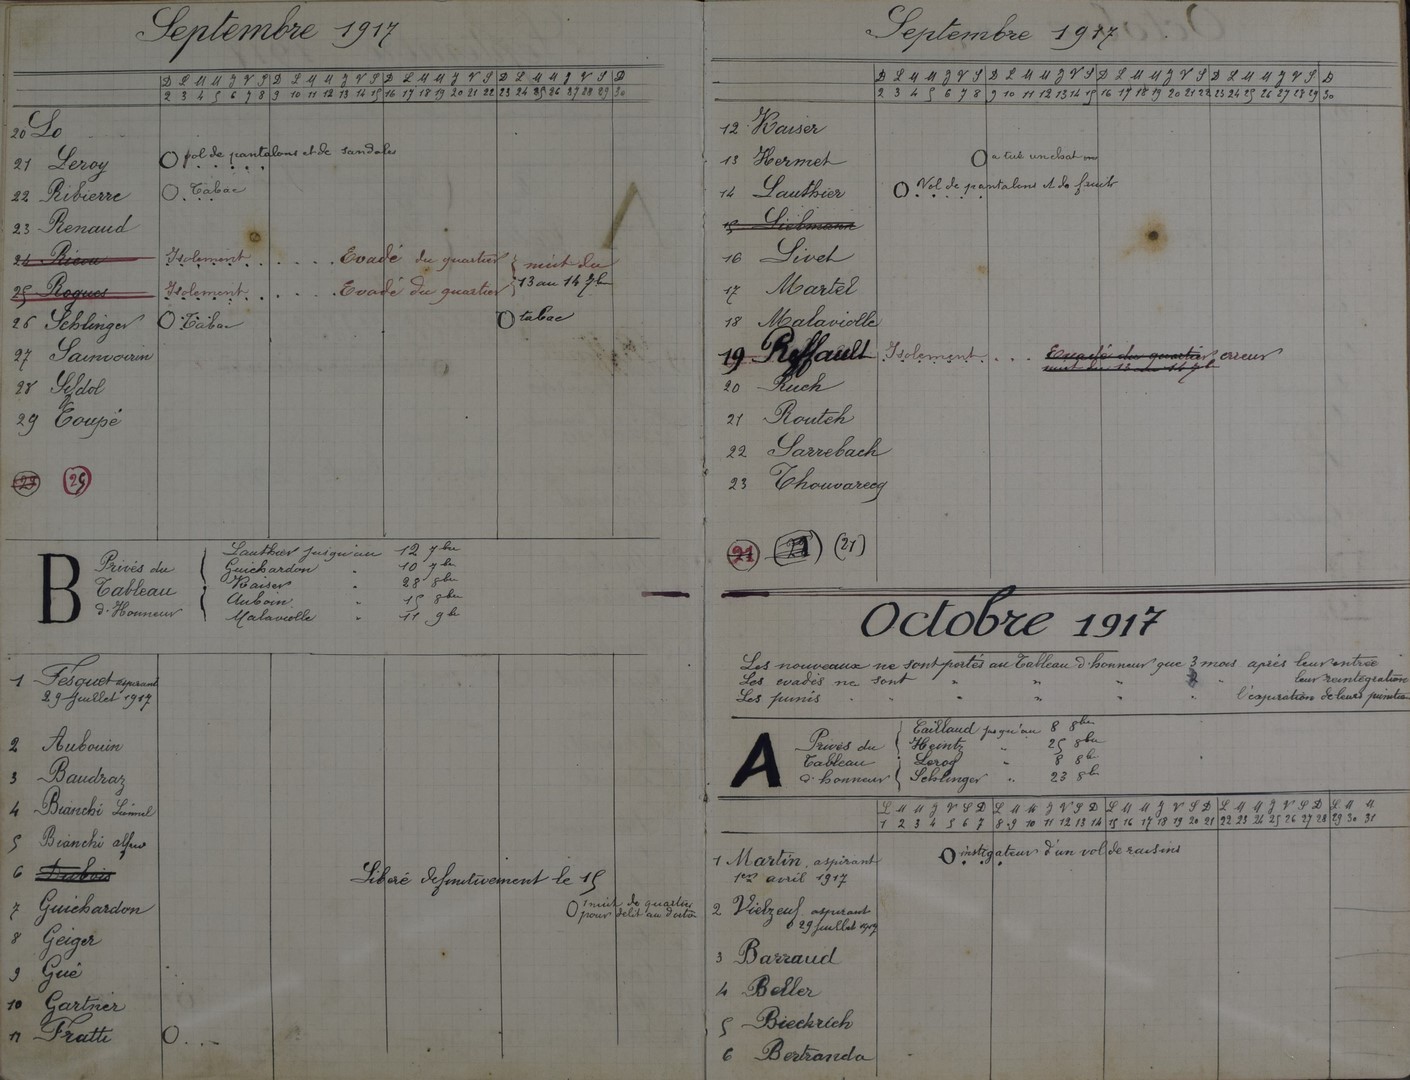 Septembre 1917
D L M M J V S D L M M J V S D L M M J V S D L M M J V S D
2 3 4 5 6 7 8 9 10 11 12 13 14 15 16 17 18 19 20 21 22 23 24 25 26 27 28 29 30
20 Lo
21 Leroy O vol de pantalons et de sandales
22 Ribierre O Tabac
23 Renaud
24 Isolement Evadé du quartier { nuit du
25 Roques Isolement Evadé du quartier { 13 au 14 7b
26 Schlinger O Tabac O tabac
27 Sainvoirin
28
29 Toupé
23 25
B
Privés du Tableau d'Honneur
Lauthier jusqu'au 12 7bre
Guichardon " 10 7bre
Kaiser " 28 8bre
Auboin " 15 8bre
Malaviolle " 11 9b
1 Fesquet aspirant
29 Juillet 1917
2 Aubouin
3 Baudraz
4 Bianchi
5 Bianchi
6 Dubois Libéré définitivement le 15
7 Guichardon O 1 nuit de quartier
pour délit au
8 Geiger
9 Gué
10 Gartner
11 Fratti O
Septembre 1917
D L M M J V S D L M M J V S D L M M J V S D L M M J V S D
2 3 4 5 6 7 8 9 10 11 12 13 14 15 16 17 18 19 20 21 22 23 24 25 26 27 28 29 30
12 Kaiser
13 Hermet O a tué un chat
14 Lauthier O Vol de pantalons et de fruits
15 Liebmann
16 Livet
17 Martel
18 Malaviolle
19 Roffault Isolement Evadé du quartier erreur
nuit du 13 au 14 7b
20 Ruch
21 Routch
22 Sarrebach
23 Thouvarecq
21 (21)
Octobre 1917
Les nouveaux ne sont portés au Tableau d'honneur que 3 mois après leur entrée
Les evadés ne sont " " " leur reintégration
Les punis " " " " l'expiration de leurs punition
A
Privés du Tableau d'honneur
Taillaud jusqu'au 8 8bre
Heintz " 25 8bre
Leroy " 8 8b
Schlinger " 23 8b
L M M J V S D L M M J V S D L M M J V S D L M M J V S D L M M
1 2 3 4 5 6 7 8 9 10 11 12 13 14 15 16 17 18 19 20 21 22 23 24 25 26 27 28 29 30 31
1 Martin aspirant O instigateur d'un vol de raisins
1er avril 1917
2 Vielzeuf aspirant
29 juillet 1917
3 Barraud
4 Beller
5 Bieckrich
6 Bertranda